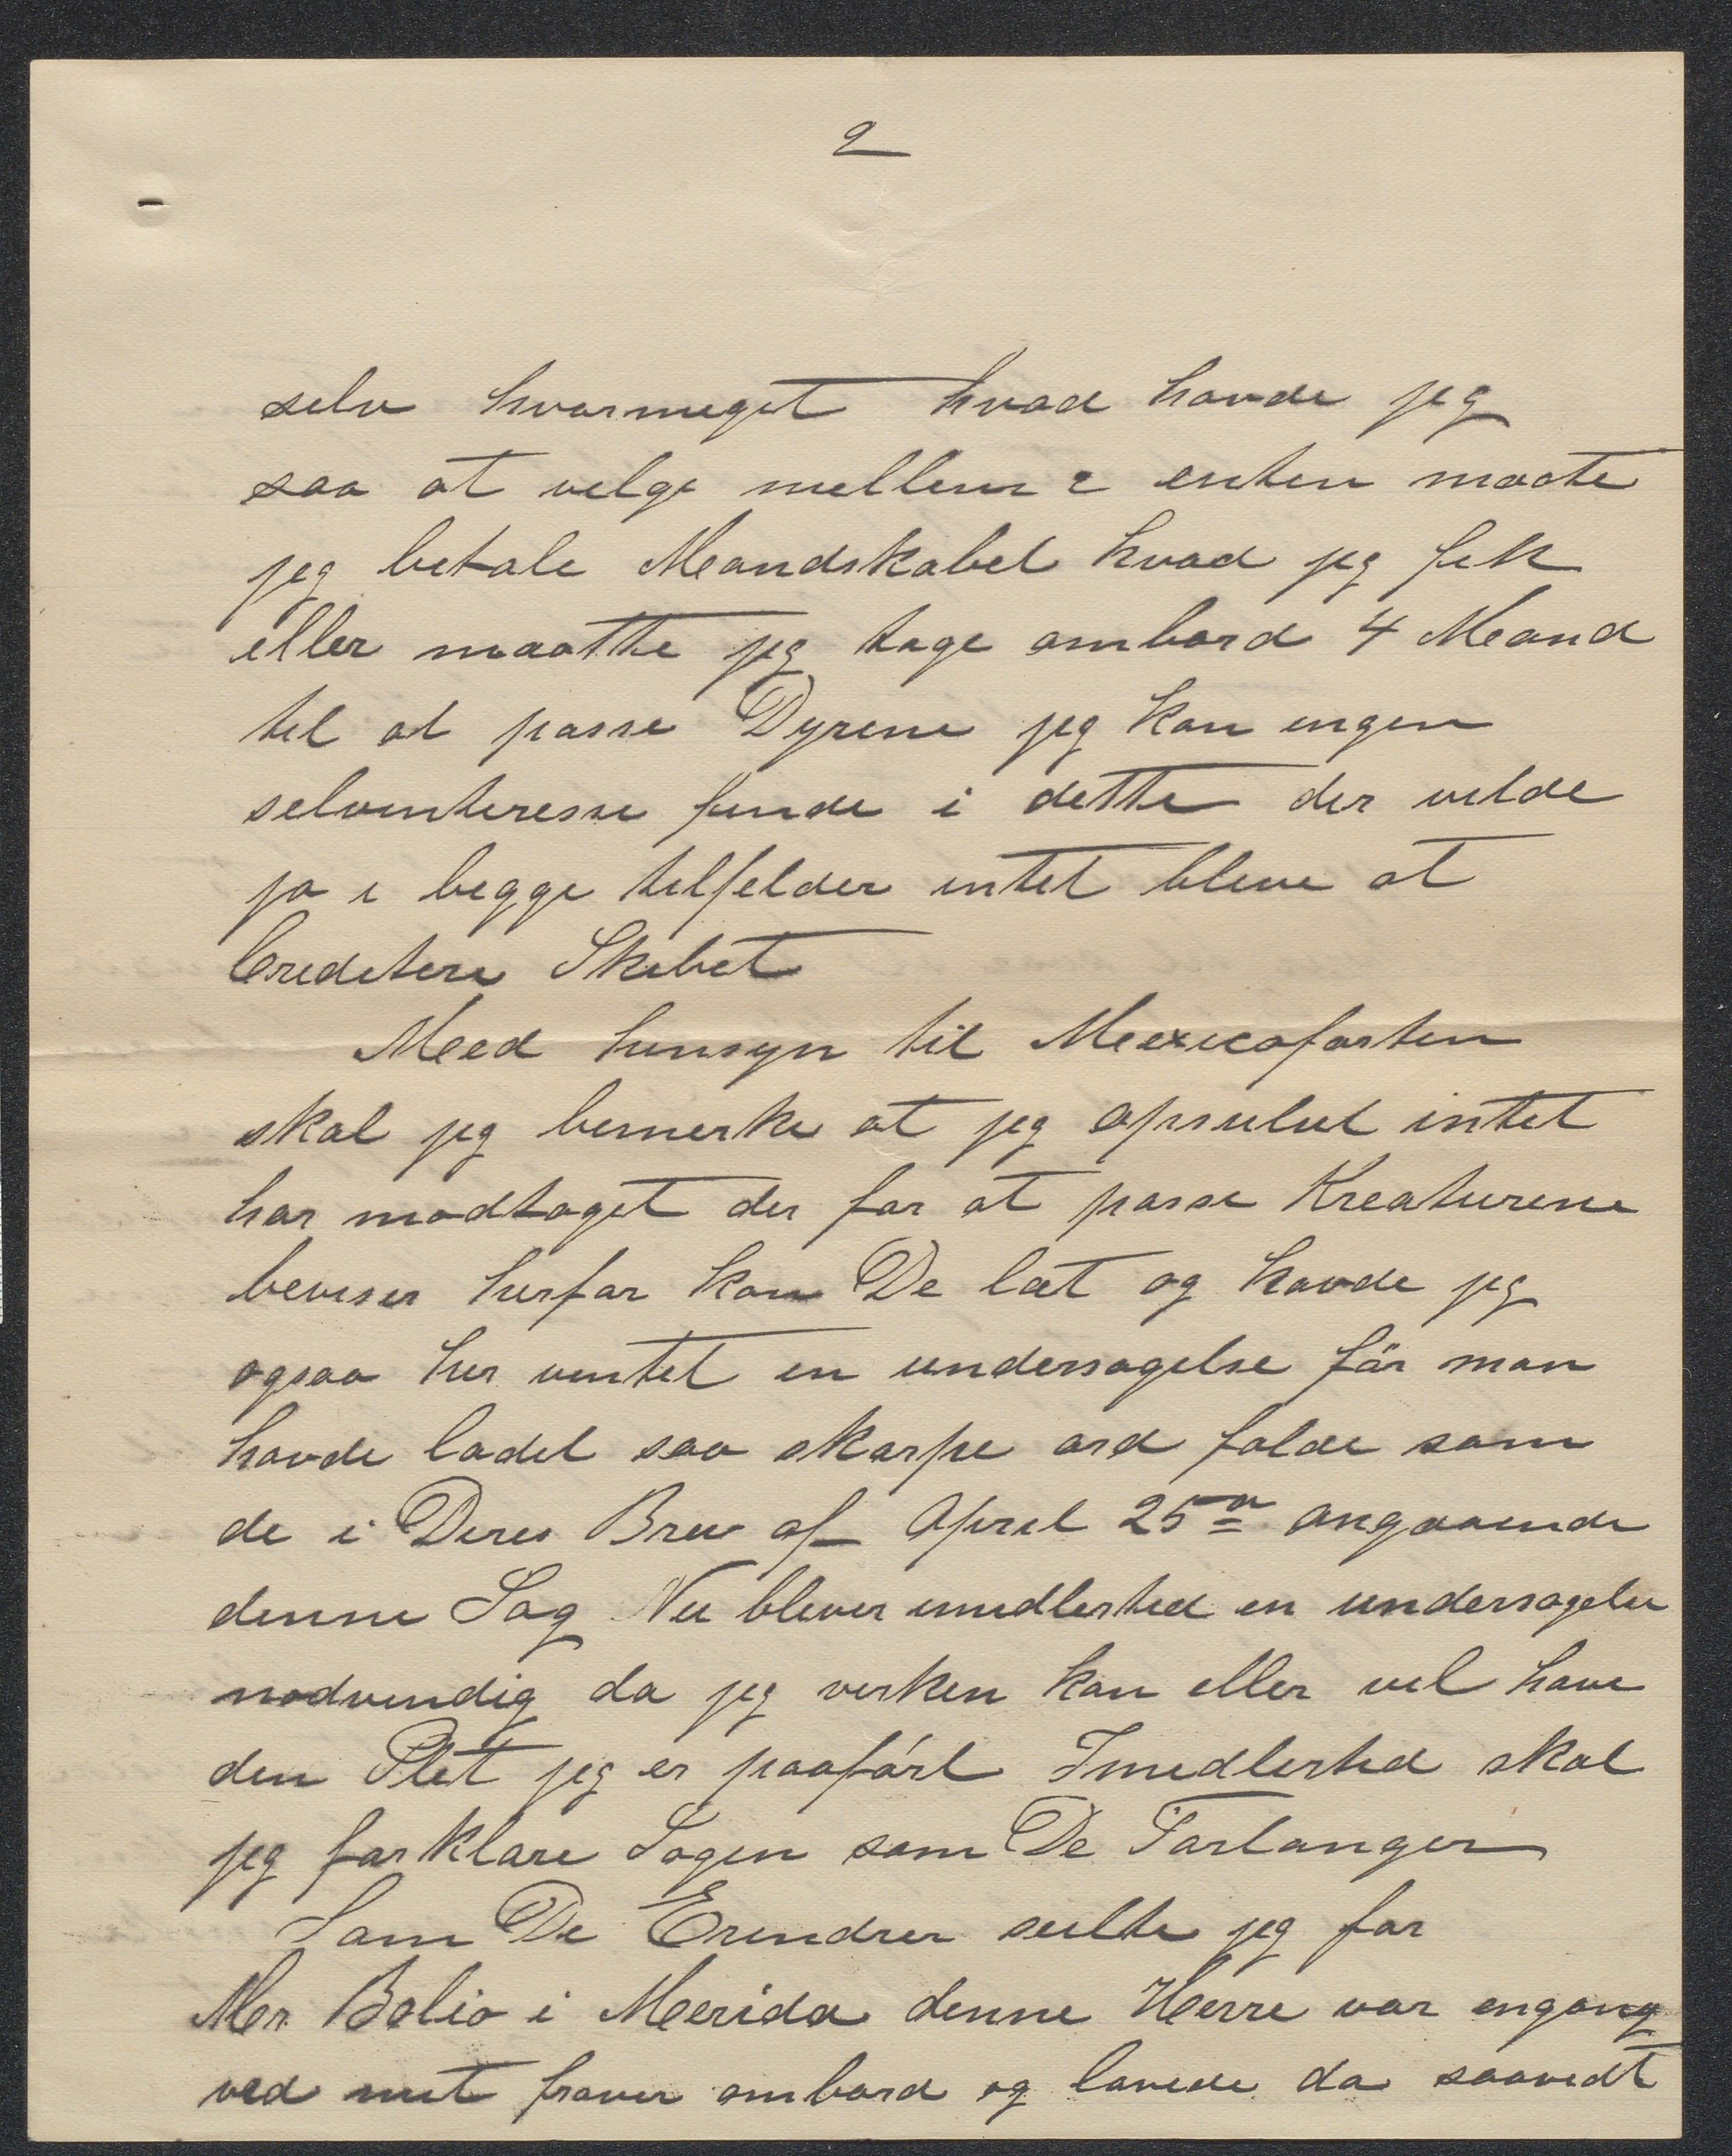 2
selv hvormeget hvad havde jeg
saa at velge mellem 2 enten maate
jeg betale Mandskabet hvad jeg fik
eller maatte jeg tage ombord 4 Mand
til at passe Dyrene jeg kan ingen
selvinteresse finde i dette der vilde
jo i begge tilfelder intet blive at
Creditere Skibet
Med hensyn til Mexicofarten
skal jeg bemerke at jeg apsulut intet
har modtaget der for at passe Kreaturene
beviser herfor kan De let og havde jeg
ogsaa her ventet en undersogelse før man
havde ladet saa skarpe ord falde som
de i Deres Brev af April 25de angaaende
denne Sag Nu bliver imidlertid en undersogelse
nodvendig da jeg verken kan eller vil have
den Plet jeg er paaført Imidlertid skal
jeg forklare Sagen som De Forlanger
Som De Erindrer seilte jeg for
Mr. Bolio i Merida denne Herre var engang
ved mit fraver ombord og lavede da saavidt